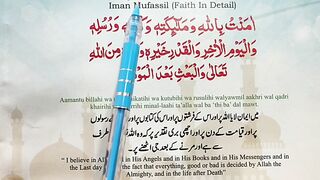 Iman Mufassil (Faith In Detail)
اٰمَنْتُ بِاللهِ وَمَلٰٓئِكَتِهٖ وَرُسُلِهٖ
وَالْيَوْمِ الْاٰخِرِ وَالْقَدْرِ خَيْرِهٖ مِنَ اللهِ
تَعَالٰى وَالْبَعْثِ بَعْدَ الْمَوْتِ
Aamantu billahi wa kutubihi wa rusulihi walyawmil aakhri wal qadri
khairihi minal-laahi ta'alla wal ba 'thi ba'dal mawt.
ایمان لایا میں اللہ پر اور اس کے فرشتوں پر اور اس کی کتابوں پر اور اس کے رسولوں
پر اور قیامت کے دن پر اور اچھی بری تقدیر پر کہ وہ اللہ کی طرف
سے ہے اور مرنے کے بعد اٹھنے پر۔
" I believe in Allah and in His Angels and in His Books and in His Messengers and in
the Last day and the fact that everything, good or bad is decided by Allah the
Almighty, and in the life after Death"